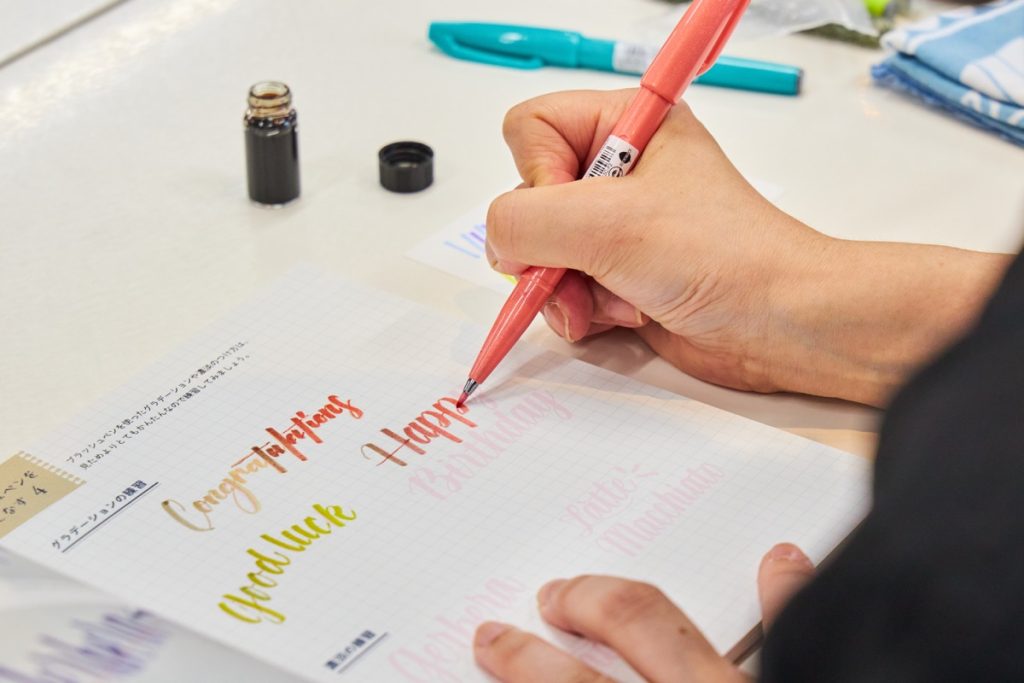 ブラッシュペンを使ったグラデーションや濃淡のつけ方は、
見ためよりとてもかんたんなので練習してみましょう。
グラデーションの練習
Congratulations
Happ
Birthday
Good luck
Latte
Macchiato
濃淡の練習
Gerbera